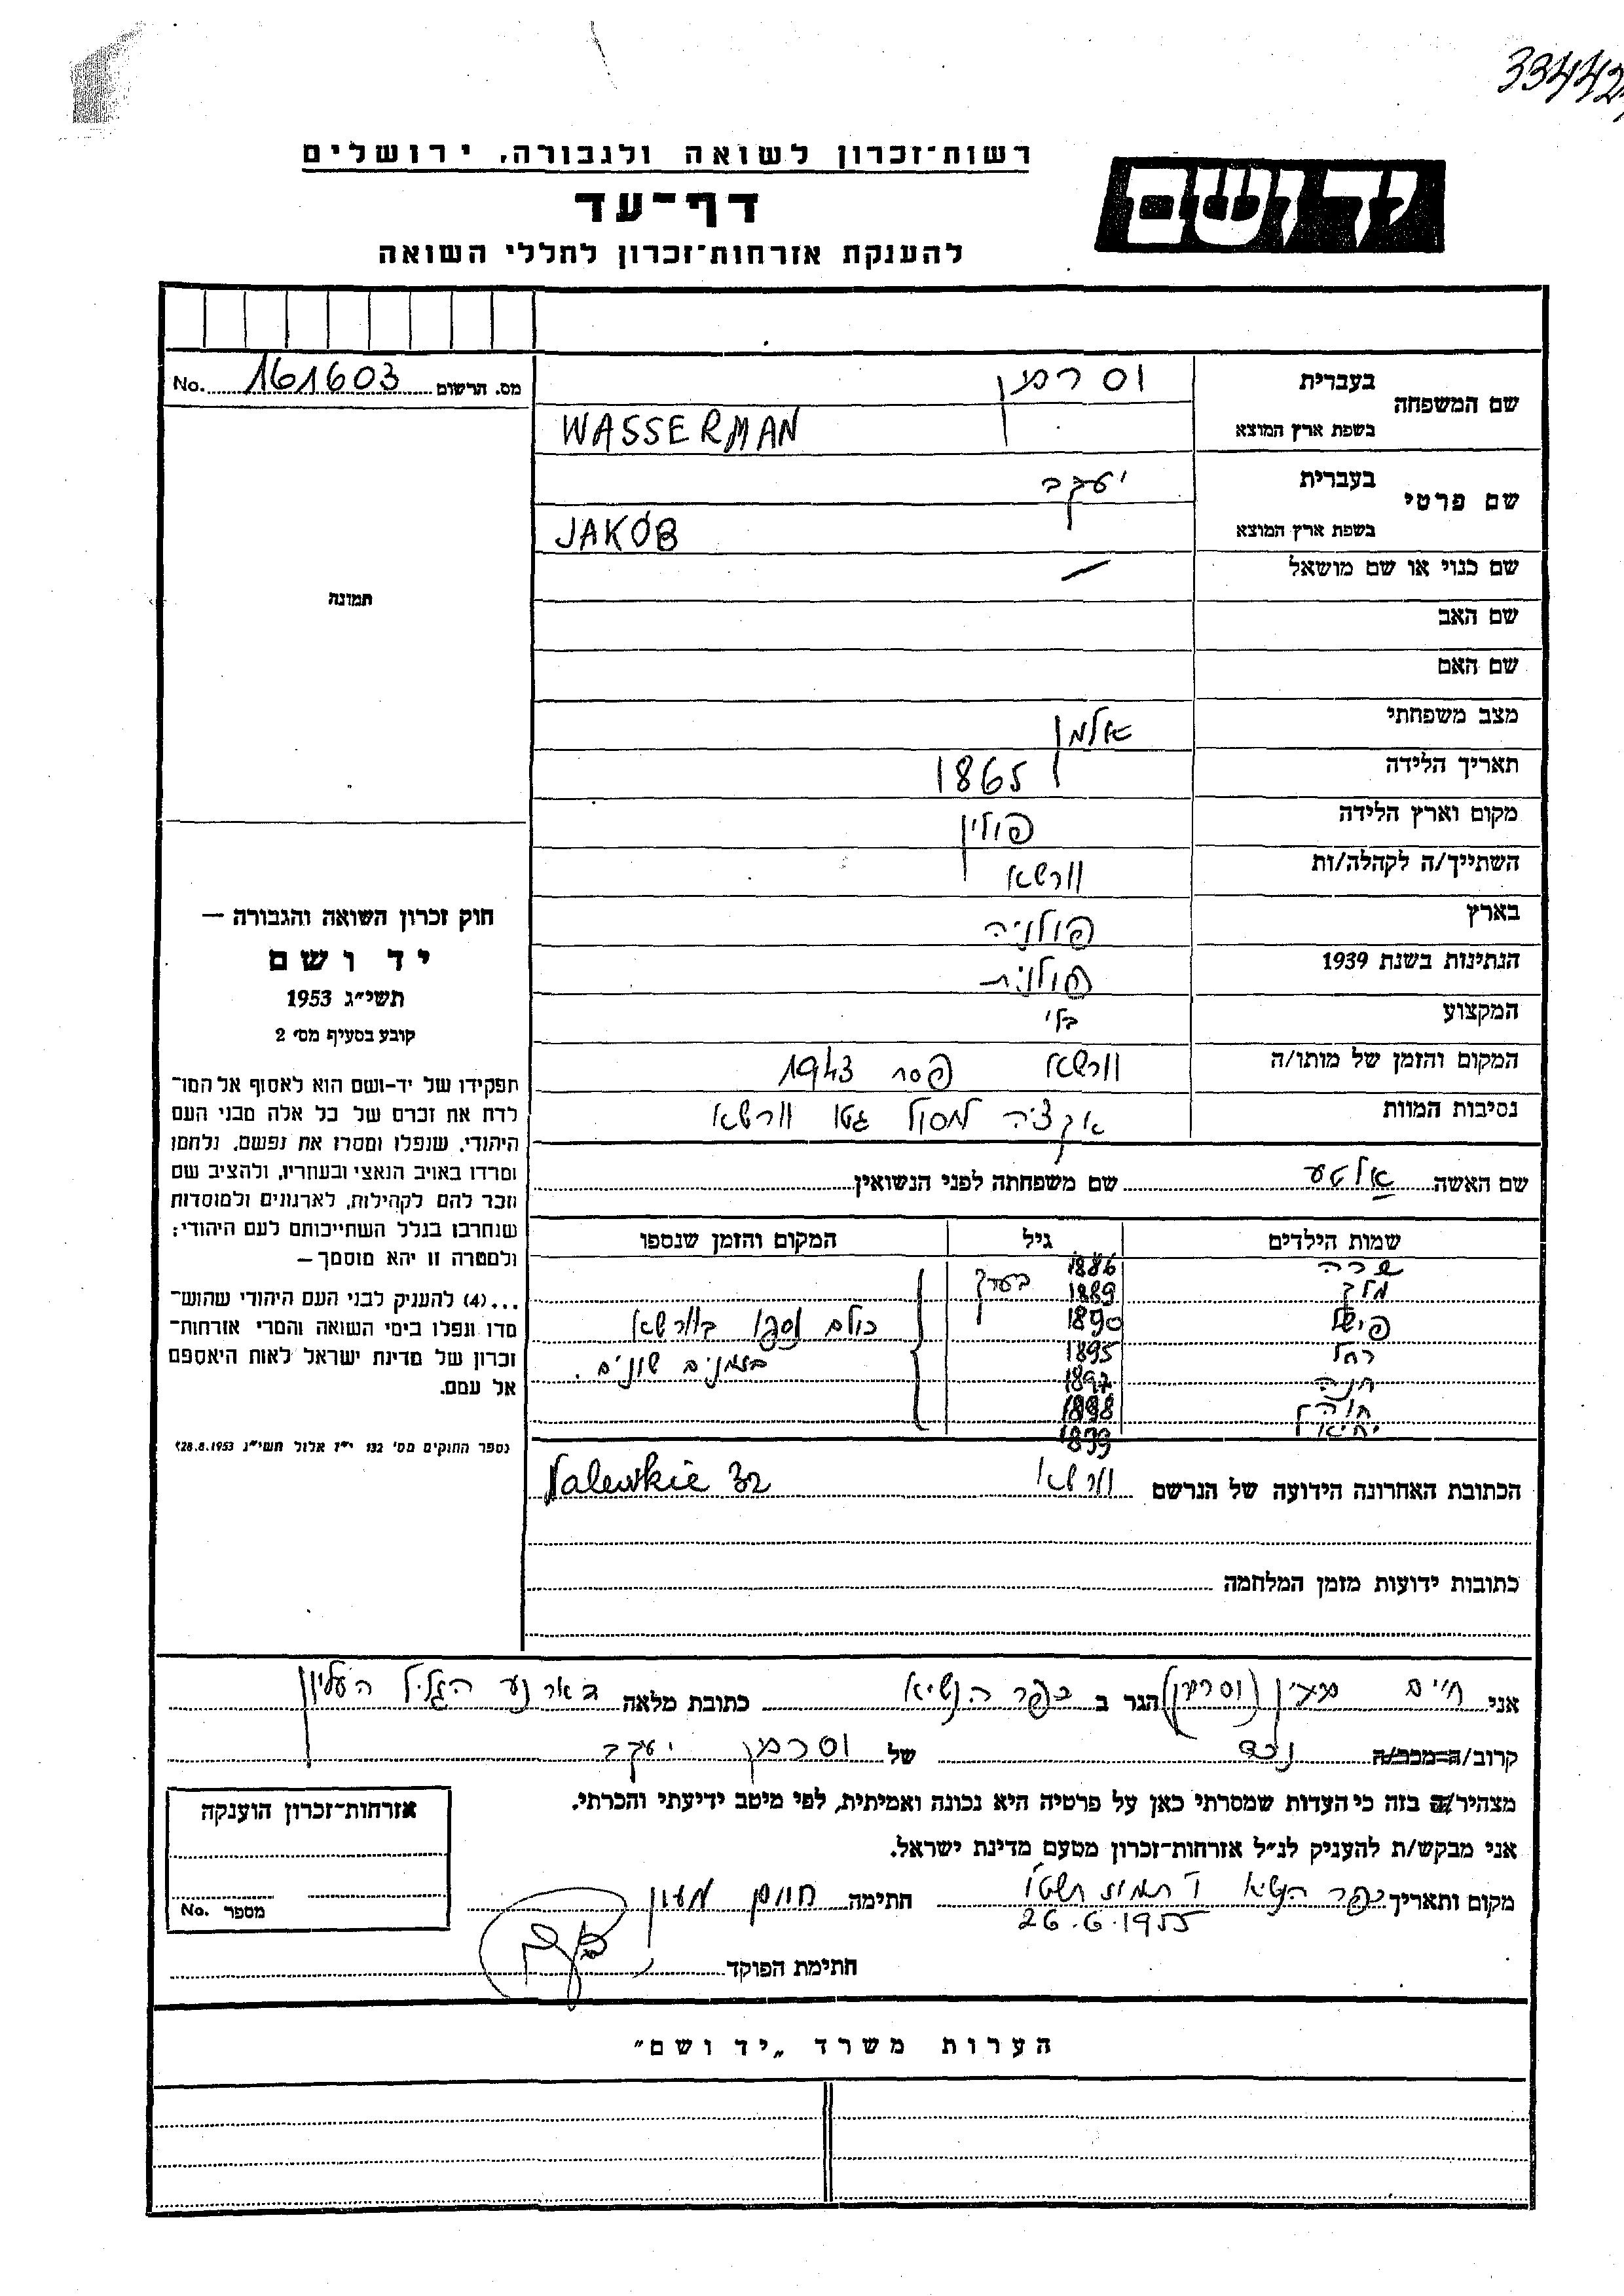 33442
רשות־זכרון לשואה ולגבורה, ירושלים
יד ושם
דף־עד
להענקת אזרחות־זכרון לחללי השואה
שם המשפחה בעברית וסרמן
בשפת ארץ המוצא WASSERMAN
שם פרטי בעברית יעקב
בשפת ארץ המוצא JAKÓB
שם כנוי או שם מושאל —
שם האב
שם האם
מצב משפחתי אלמן
תאריך הלידה 1865
מקום וארץ הלידה פולין
השתייך/ה לקהלה/ות וורשא
בארץ פולניה
הנתינות בשנת 1939 פולנית
המקצוע בלי
המקום והזמן של מותו/ה וורשא פסח 1943
נסיבות המוות אקציה לחסול גטו וורשא
מס. הרשום 161603 No.
תמונה
חוק זכרון השואה והגבורה —
יד ושם
תשי״ג 1953
קובע בסעיף מס׳ 2
תפקידו של יד-ושם הוא לאסוף אל המו־
לדת את זכרם של כל אלה מבני העם
היהודי, שנפלו ומסרו את נפשם, נלחמו
ומרדו באויב הנאצי ובעוזריו, ולהציב שם
וזכר להם לקהילות, לארגונים ולמוסדות
שנחרבו בגלל השתייכותם לעם היהודי;
ולמטרה זו יהא מוסמך —
...(4) להעניק לבני העם היהודי שהוש־
מדו ונפלו בימי השואה והמרי אזרחות־
זכרון של מדינת ישראל לאות היאספם
אל עמם.
(ספר החוקים מס׳ 132 י״ז אלול תשי״ג 28.8.1953)
שם האשה אלטע שם משפחתה לפני הנשואין
שמות הילדים גיל המקום והזמן שנספו
שרה 1886
מלך 1889 בערך
פישל 1890 כולם נספו בוורשא
רחל 1895 בזמנים שונים.
חנה 1897
חוה 1898
יחיאל 1899
הכתובת האחרונה הידועה של הנרשם וורשא Nalewkie 32
כתובות ידועות מזמן המלחמה
אני חיים מעין (וסרמן) הגר ב כפר הנשיא כתובת מלאה דאר נע הגליל העליון
קרוב/ה־מכר/ה נכד של וסרמן יעקב
מצהיר/ה בזה כי העדות שמסרתי כאן על פרטיה היא נכונה ואמיתית, לפי מיטב ידיעתי והכרתי.
אני מבקש/ת להעניק לנ״ל אזרחות־זכרון מטעם מדינת ישראל.
מקום ותאריך כפר הנשיא ו׳ תמוז תשט״ו חתימה חיים מעין
26.6.1955
חתימת הפוקד
אזרחות־זכרון הוענקה
מספר No.
הערות משרד „יד ושם״